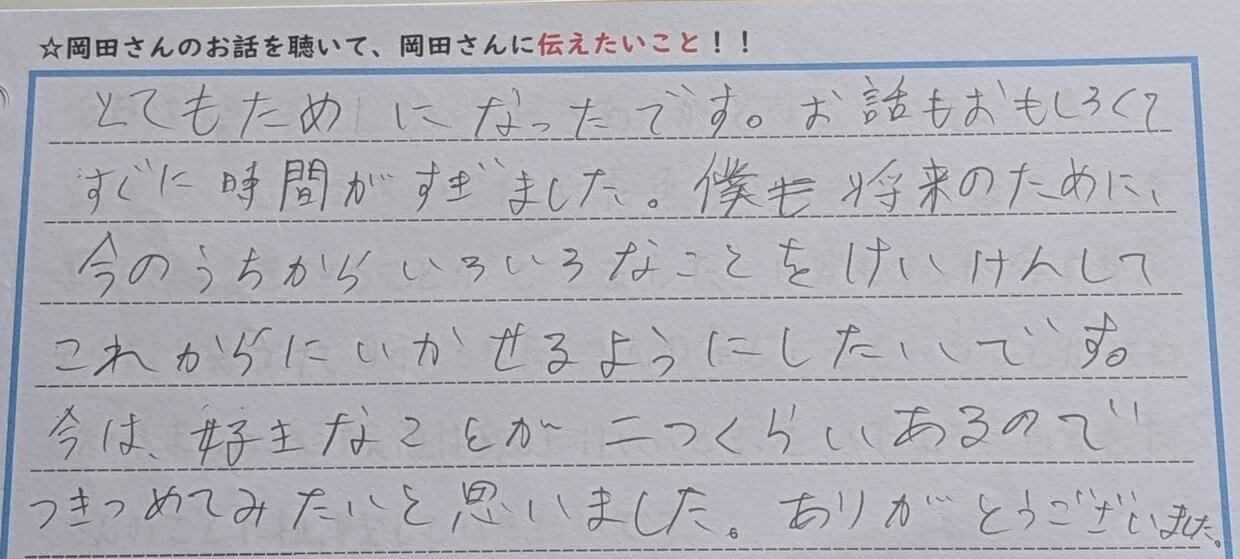 ☆岡田さんのお話を聴いて、岡田さんに伝えたいこと！！
とてもためになったです。お話もおもしろくて
すぐに時間がすぎました。僕も将来のために、
今のうちからいろいろなことをけいけんして
これからにいかせるようにしたいです。
今は、好きなことが二つくらいあるので
つきつめてみたいと思いました。ありがとうございました。